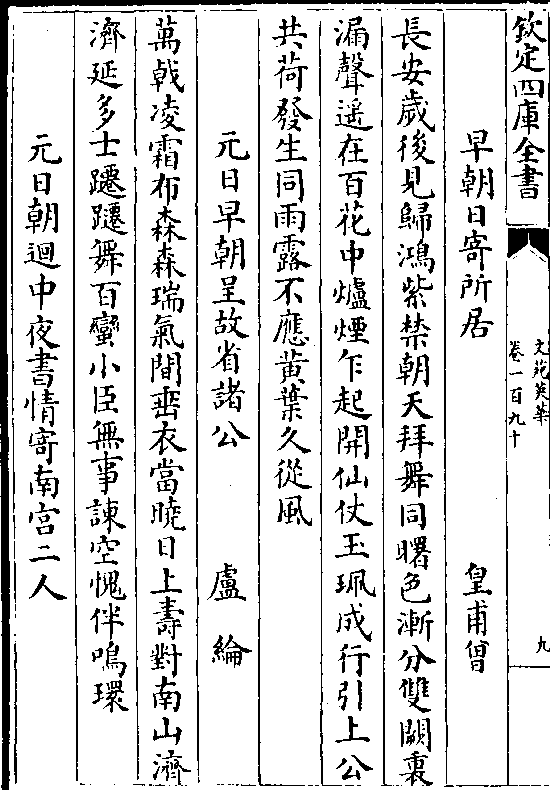 欽定四庫全書
文苑英華
卷一百九十
九
早朝日寄所居 皇甫曾
長安歲後見歸鴻紫禁朝天拜舞同曙色漸分雙闕裏
漏聲遥在百花中爐煙乍起開仙仗玉珮成行引上公
共荷發生同雨露不應黄葉久從風
元日早朝呈故省諸公 盧綸
萬戟凌霜布森森瑞氣間垂衣當曉日上壽對南山濟
濟延多士蹮蹮舞百蠻小臣無事諫空愧伴鳴環
元日朝迴中夜書情寄南宫二人